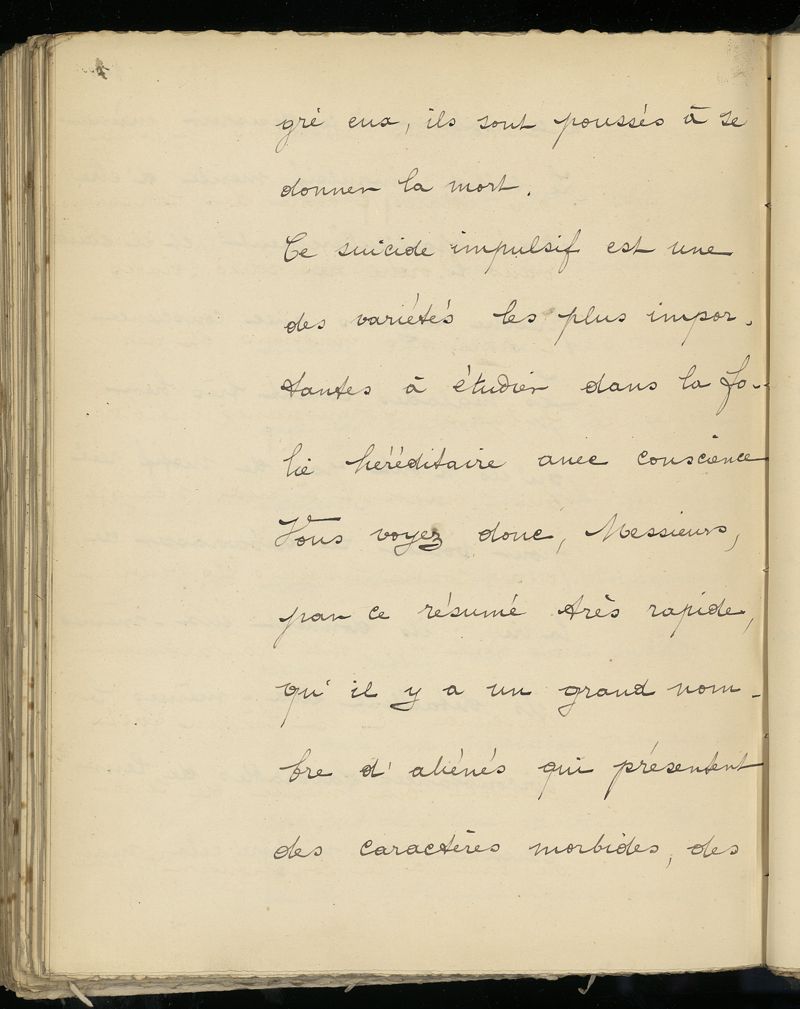 gré eux, ils sont poussés à se
donner la mort.
Ce suicide impulsif est une
des variétés les plus impor-
tantes à étudier dans la fo-
lie héréditaire avec conscience
Vous voyez donc, Messieurs,
par ce résumé très rapide,
qu'il y a un grand nom-
bre d'aliénés qui présentent
des caractères morbides, des